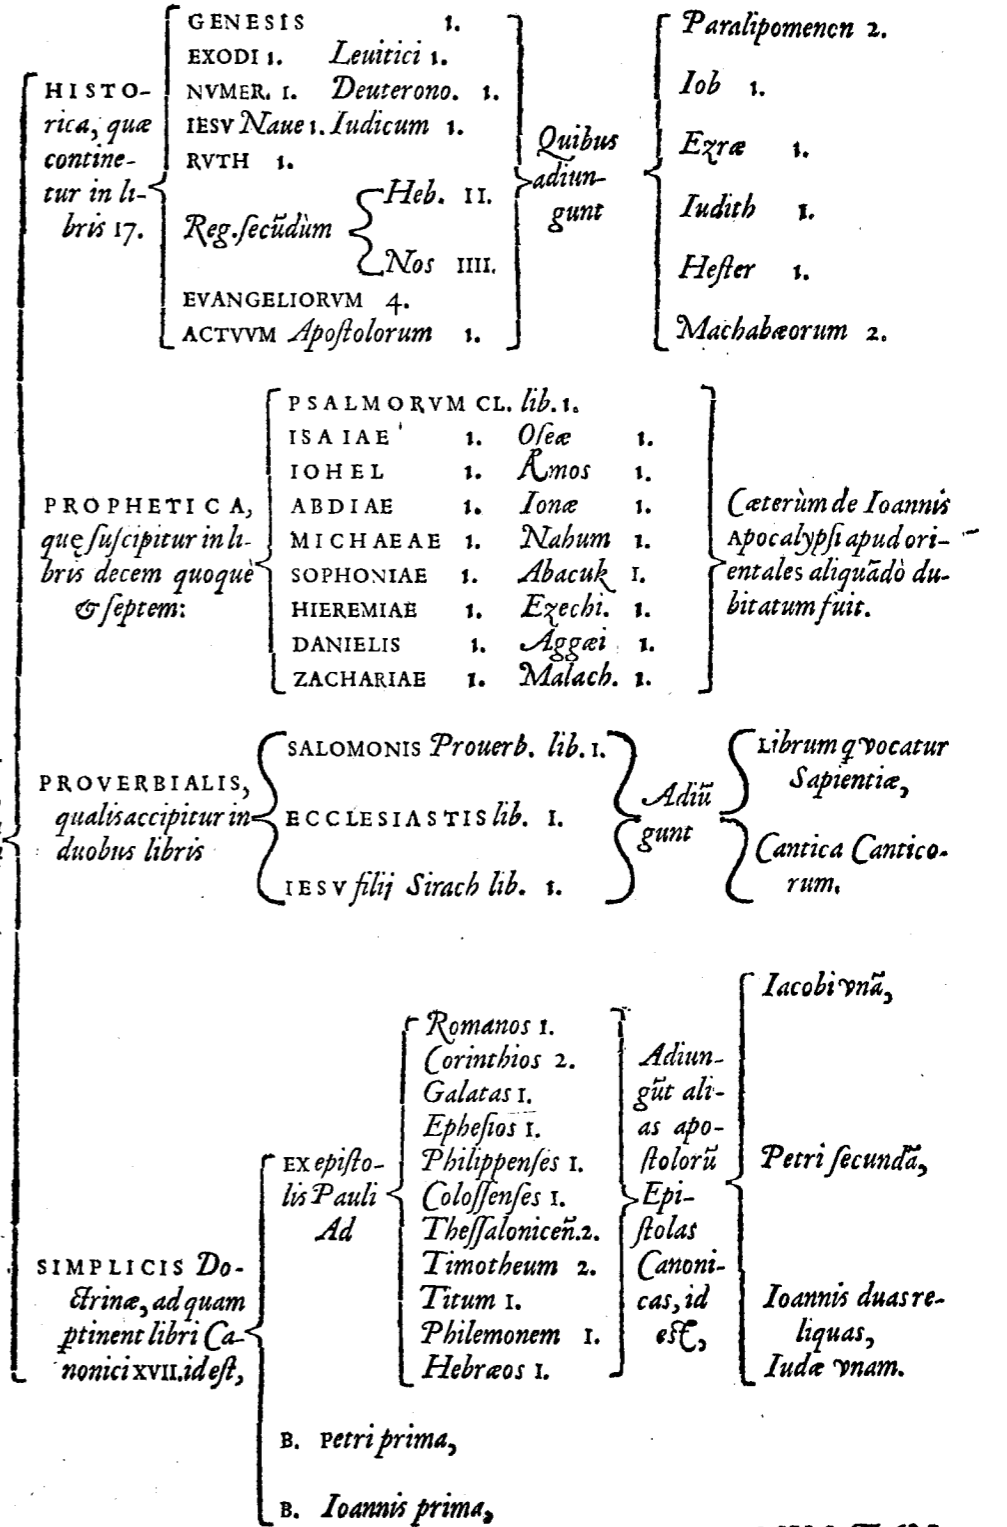 HISTO-
rica, quæ
contine-
tur in li-
bris 17.
GENESIS 1.
EXODI 1. Leuitici 1.
NVMER. 1. Deuterono. 1.
IESV Naue 1. Iudicum 1.
RVTH 1.
Reg. ſecũdùm
Heb. II.
Nos IIII.
EVANGELIORVM 4.
ACTVVM Apoſtolorum 1.
Quibus
adiun-
gunt
Paralipomencn 2.
Iob 1.
Ezræ 1.
Iudith 1.
Heſter 1.
Machabæorum 2.
PROPHETICA,
quę ſuſcipitur in li-
bris decem quoquè
& ſeptem:
PSALMORVM CL. lib. 1.
ISAIAE 1. Oſeæ 1.
IOHEL 1. Amos 1.
ABDIAE 1. Ionæ 1.
MICHAEAE 1. Nahum 1.
SOPHONIAE 1. Abacuk 1.
HIEREMIAE 1. Ezechi. 1.
DANIELIS 1. Aggæi 1.
ZACHARIAE 1. Malach. 1.
Cæterùm de Ioannis
Apocalypſi apud ori-
entales aliquãdò du-
bitatum fuit.
PROVERBIALIS,
qualis accipitur in
duobus libris
SALOMONIS Prouerb. lib. 1.
ECCLESIASTIS lib. I.
IESV filij Sirach lib. 1.
Adiũ
gunt
Librum q vocatur
Sapientiæ,
Cantica Cantico-
rum.
SIMPLICIS Do-
ctrinæ, ad quam
ꝑtinent libri Ca-
nonici XVII. id eſt,
EX epiſto-
lis Pauli
Ad
Romanos 1.
Corinthios 2.
Galatas 1.
Epheſios 1.
Philippenſes 1.
Coloſſenſes 1.
Theſſaloniceñ. 2.
Timotheum 2.
Titum 1.
Philemonem 1.
Hebræos 1.
Adiun-
gũt ali-
as apo-
ſtolorũ
Epi-
ſtolas
Canoni-
cas, id
eſt,
Iacobi vnã,
Petri ſecundã,
Ioannis duas re-
liquas,
Iudæ vnam.
B. Petri prima,
B. Ioannis prima,